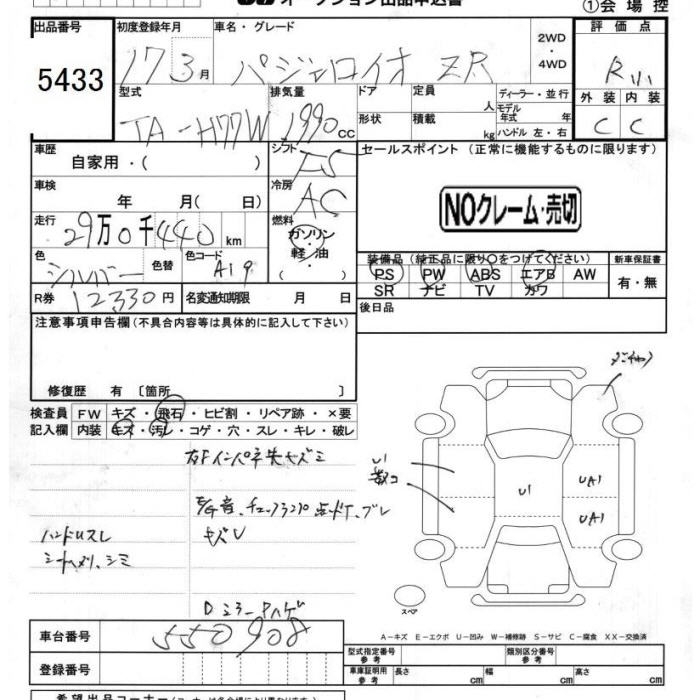 オークション出品申込書
①会場控
出品番号 初度登録年月 車名・グレード 2WD・4WD 評価点
5433 17 3月 パジェロイオ ZR R
型式 排気量 ドア 定員 人 ディーラー・並行 外装 内装
TA-H77W 1990 CC 形状 積載 kg モデル年式 年 ハンドル 左・右 C C
車歴 シフト セールスポイント (正常に機能するものに限ります)
自家用・( ) F5
車検 冷房
年 月( 日) AC
NOクレーム・売切
走行 29万0千440km 燃料
ガソリン・軽油・
色 シルバー 色替 色コード A19
装備品 (純正品に限り○をつけてください) 新車保証書
PS PW ABS エアB AW 有・無
SR ナビ TV カワ
R券 12330円 名変通知期限 月 日 後日品
注意事項申告欄(不具合内容等は具体的に記入して下さい)
修復歴 有〔箇所 〕
検査員 FW キズ・飛石・ヒビ割・リペア跡・×要
記入欄 内装 キズ・汚レ・コゲ・穴・スレ・キレ・破レ
U1
U1 UA1
UA1
ハンドルスレ
シートヘタリ、シミ
Dミラーハゲ
スペア
A-キズ E-エクボ U-凹み W-補修跡 S-サビ C-腐食 XX-交換済
車台番号 550908
型式指定番号 参考 類別区分番号 参考
登録番号 車庫証明用 参考 長さ cm 幅 cm 高さ cm
希望出品コーナー